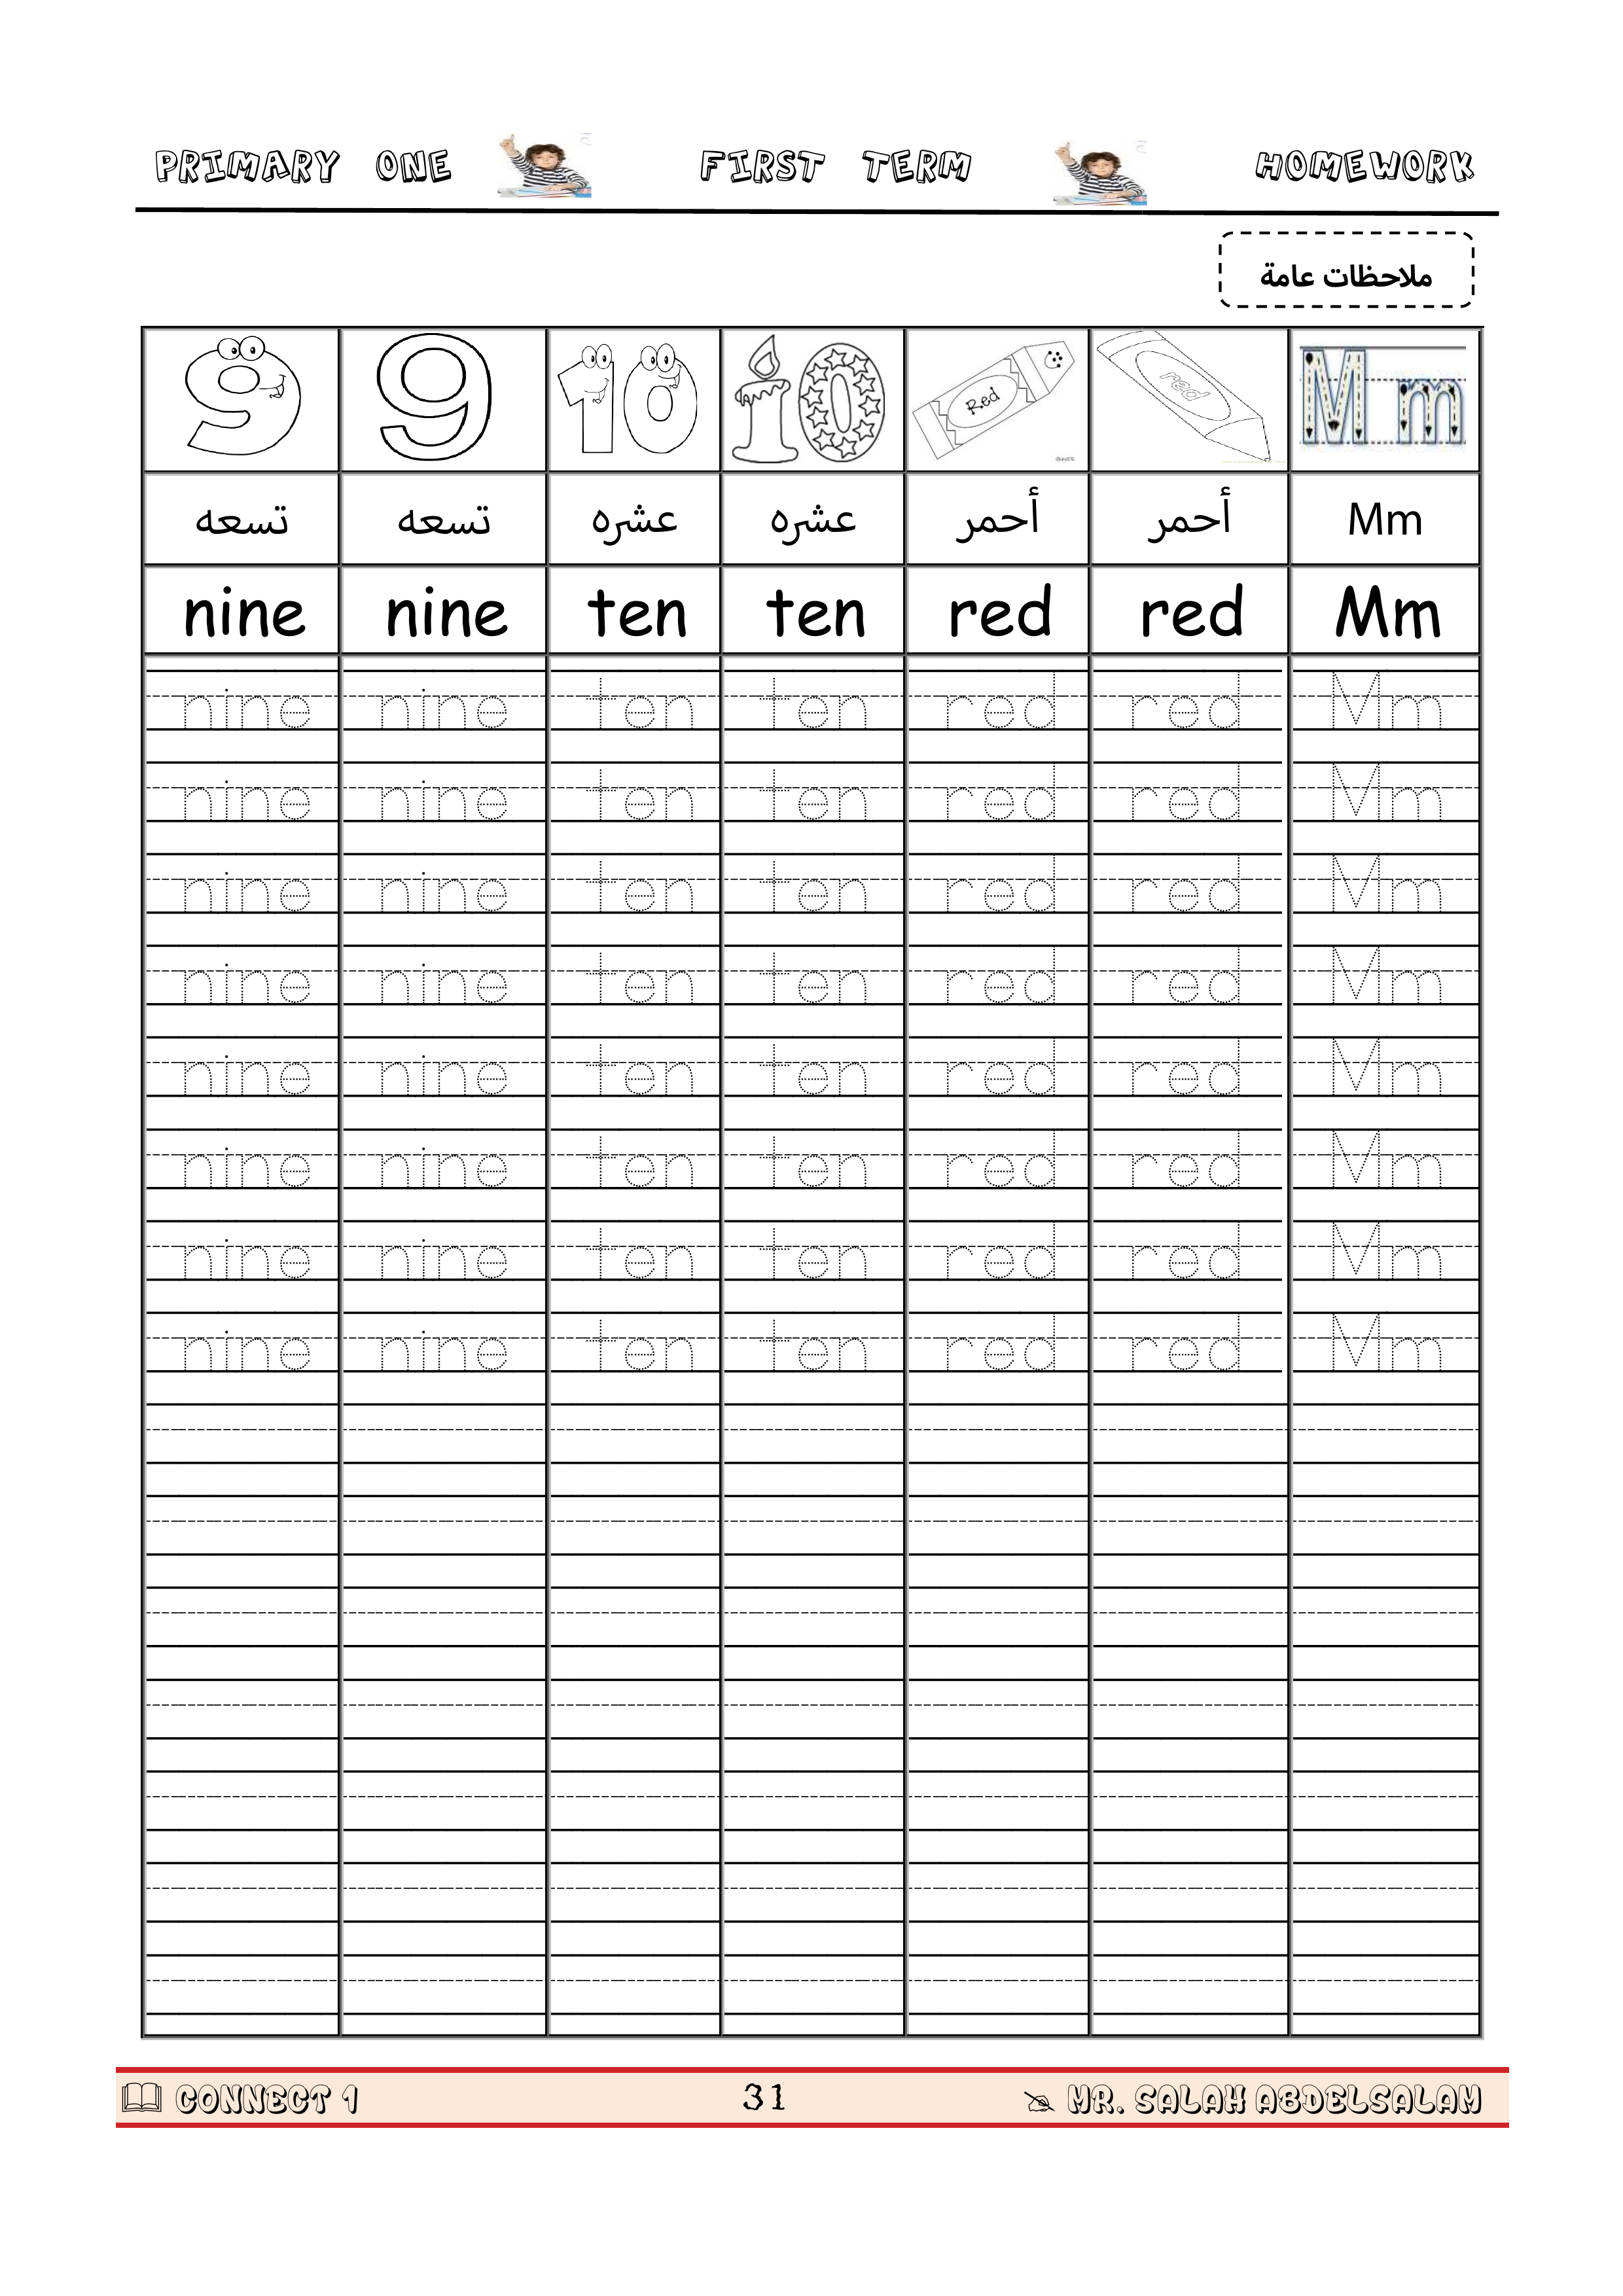 PRIMARY ONE FIRST TERM HOMEWORK
ملاحظات عامة
Red red M m
تسعه تسعه عشره عشره أحمر أحمر Mm
nine nine ten ten red red Mm
nine nine ten ten red red Mm
nine nine ten ten red red Mm
nine nine ten ten red red Mm
nine nine ten ten red red Mm
nine nine ten ten red red Mm
nine nine ten ten red red Mm
nine nine ten ten red red Mm
nine nine ten ten red red Mm
CONNECT 1 31 MR. SALAH ABDELSALAM